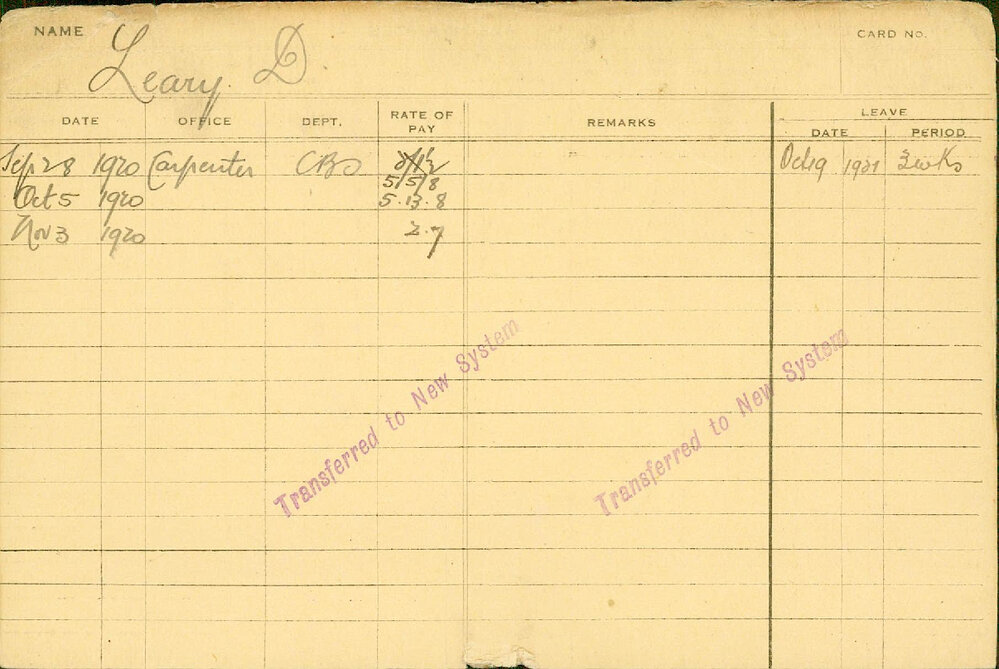 NAME Leary. D CARD NO.
DATE OFFICE DEPT. RATE OF PAY REMARKS LEAVE DATE PERIOD
Sep 28 1920 Carpenter CBO Oct 19 1921 3 wks
5/5/8
Oct 5 1920 5.13.8
Nov 3 1920 2.7
Transferred to New System
Transferred to New System